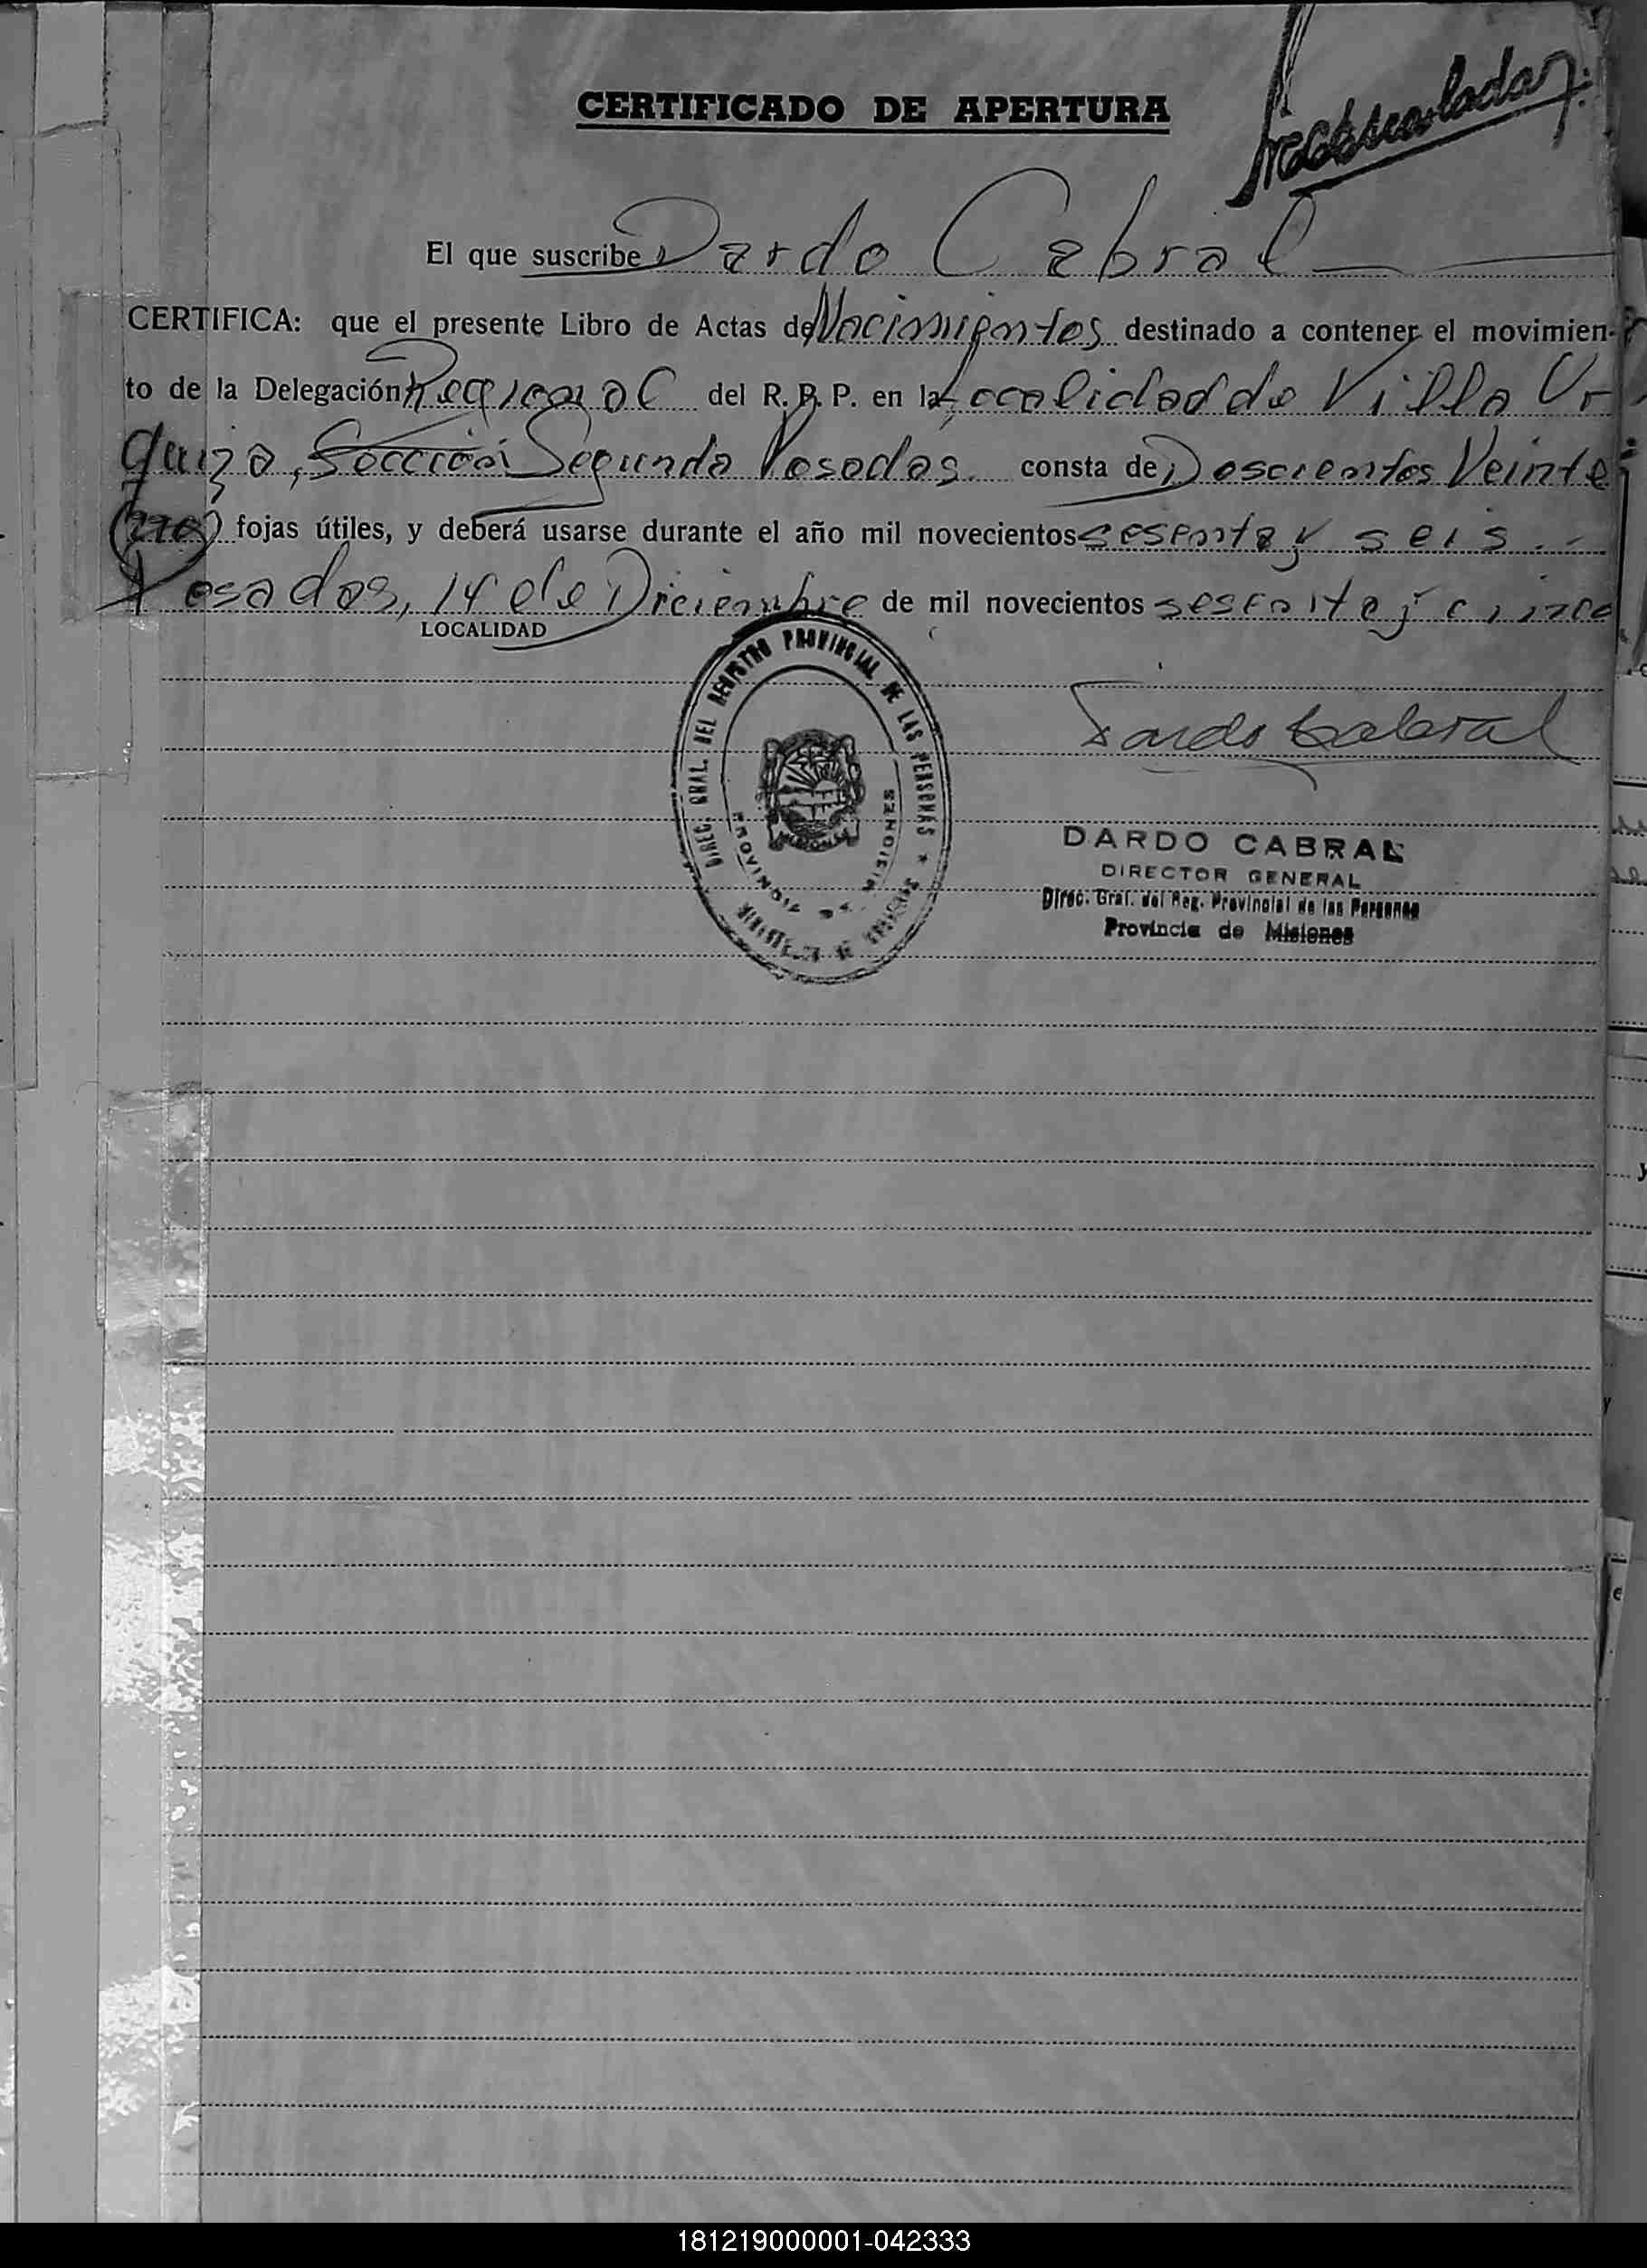 CERTIFICADO DE APERTURA
El que suscribe Dardo Cabral
CERTIFICA: que el presente Libro de Actas de Nacimientos destinado a contener el movimien-
to de la Delegación Regional del R. P. P. en la Localidad de Villa Ur
quiza, Sección Segunda Posadas. consta de Doscientos Veinte
(220) fojas útiles, y deberá usarse durante el año mil novecientos sesenta y seis.-
Posadas, 14 de Diciembre de mil novecientos sesenta y cinco
LOCALIDAD
DIREC. GRAL. DEL REGISTRO PROVINCIAL DE LAS PERSONAS
PROVINCIA DE MISIONES
Dardo Cabral
DARDO CABRAL
DIRECTOR GENERAL
Direc. Gral. del Reg. Provincial de las Personas
Provincia de Misiones
181219000001-042333